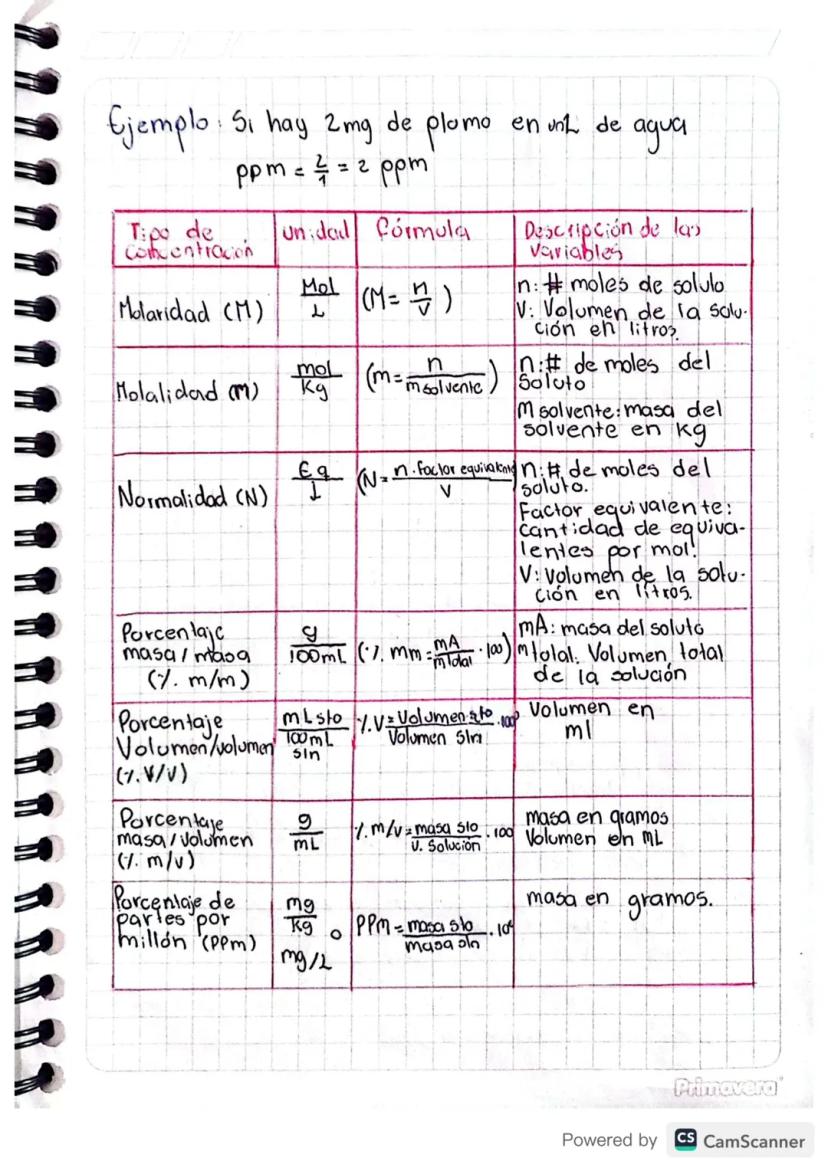 Ejemplo: Si hay 2mg de plomo en un L de agua
ppm = 2/1 = 2 ppm
Tipo de concentración
Unidad
fórmula
Descripción de las variables
Molaridad (M)
Mol/L
(M = n/V)
n: # moles de soluto
V: Volumen de la solu-
ción en litros.
Molalidad (m)
mol/Kg
(m = n/m solvente)
n: # de moles del
soluto
m solvente: masa del
solvente en Kg
Normalidad (N)
Eq/L
(N = n. factor equivalente/V)
n: # de moles del
soluto.
Factor equivalente:
cantidad de equiva-
lentes por mol.
V: Volumen de la solu-
ción en litros.
Porcentaje
masa/masa
(% m/m)
g/100mL
(% mm = mA/mTotal . 100)
mA: masa del soluto
m total: Volumen total
de la solución
Porcentaje
Volumen/volumen
(% V/V)
mL sto/100mL sln
% V = Volumen sto/Volumen sln . 100
Volumen en
ml
Porcentaje
masa/Volumen
(% m/v)
g/mL
% m/v = masa sto/V. Solución . 100
masa en gramos
Volumen en mL
Porcentaje de
partes por
millón (PPm)
mg/Kg o
mg/L
PPm = masa sto/masa sln . 10⁶
masa en gramos.
Primavera
Powered by CS CamScanner